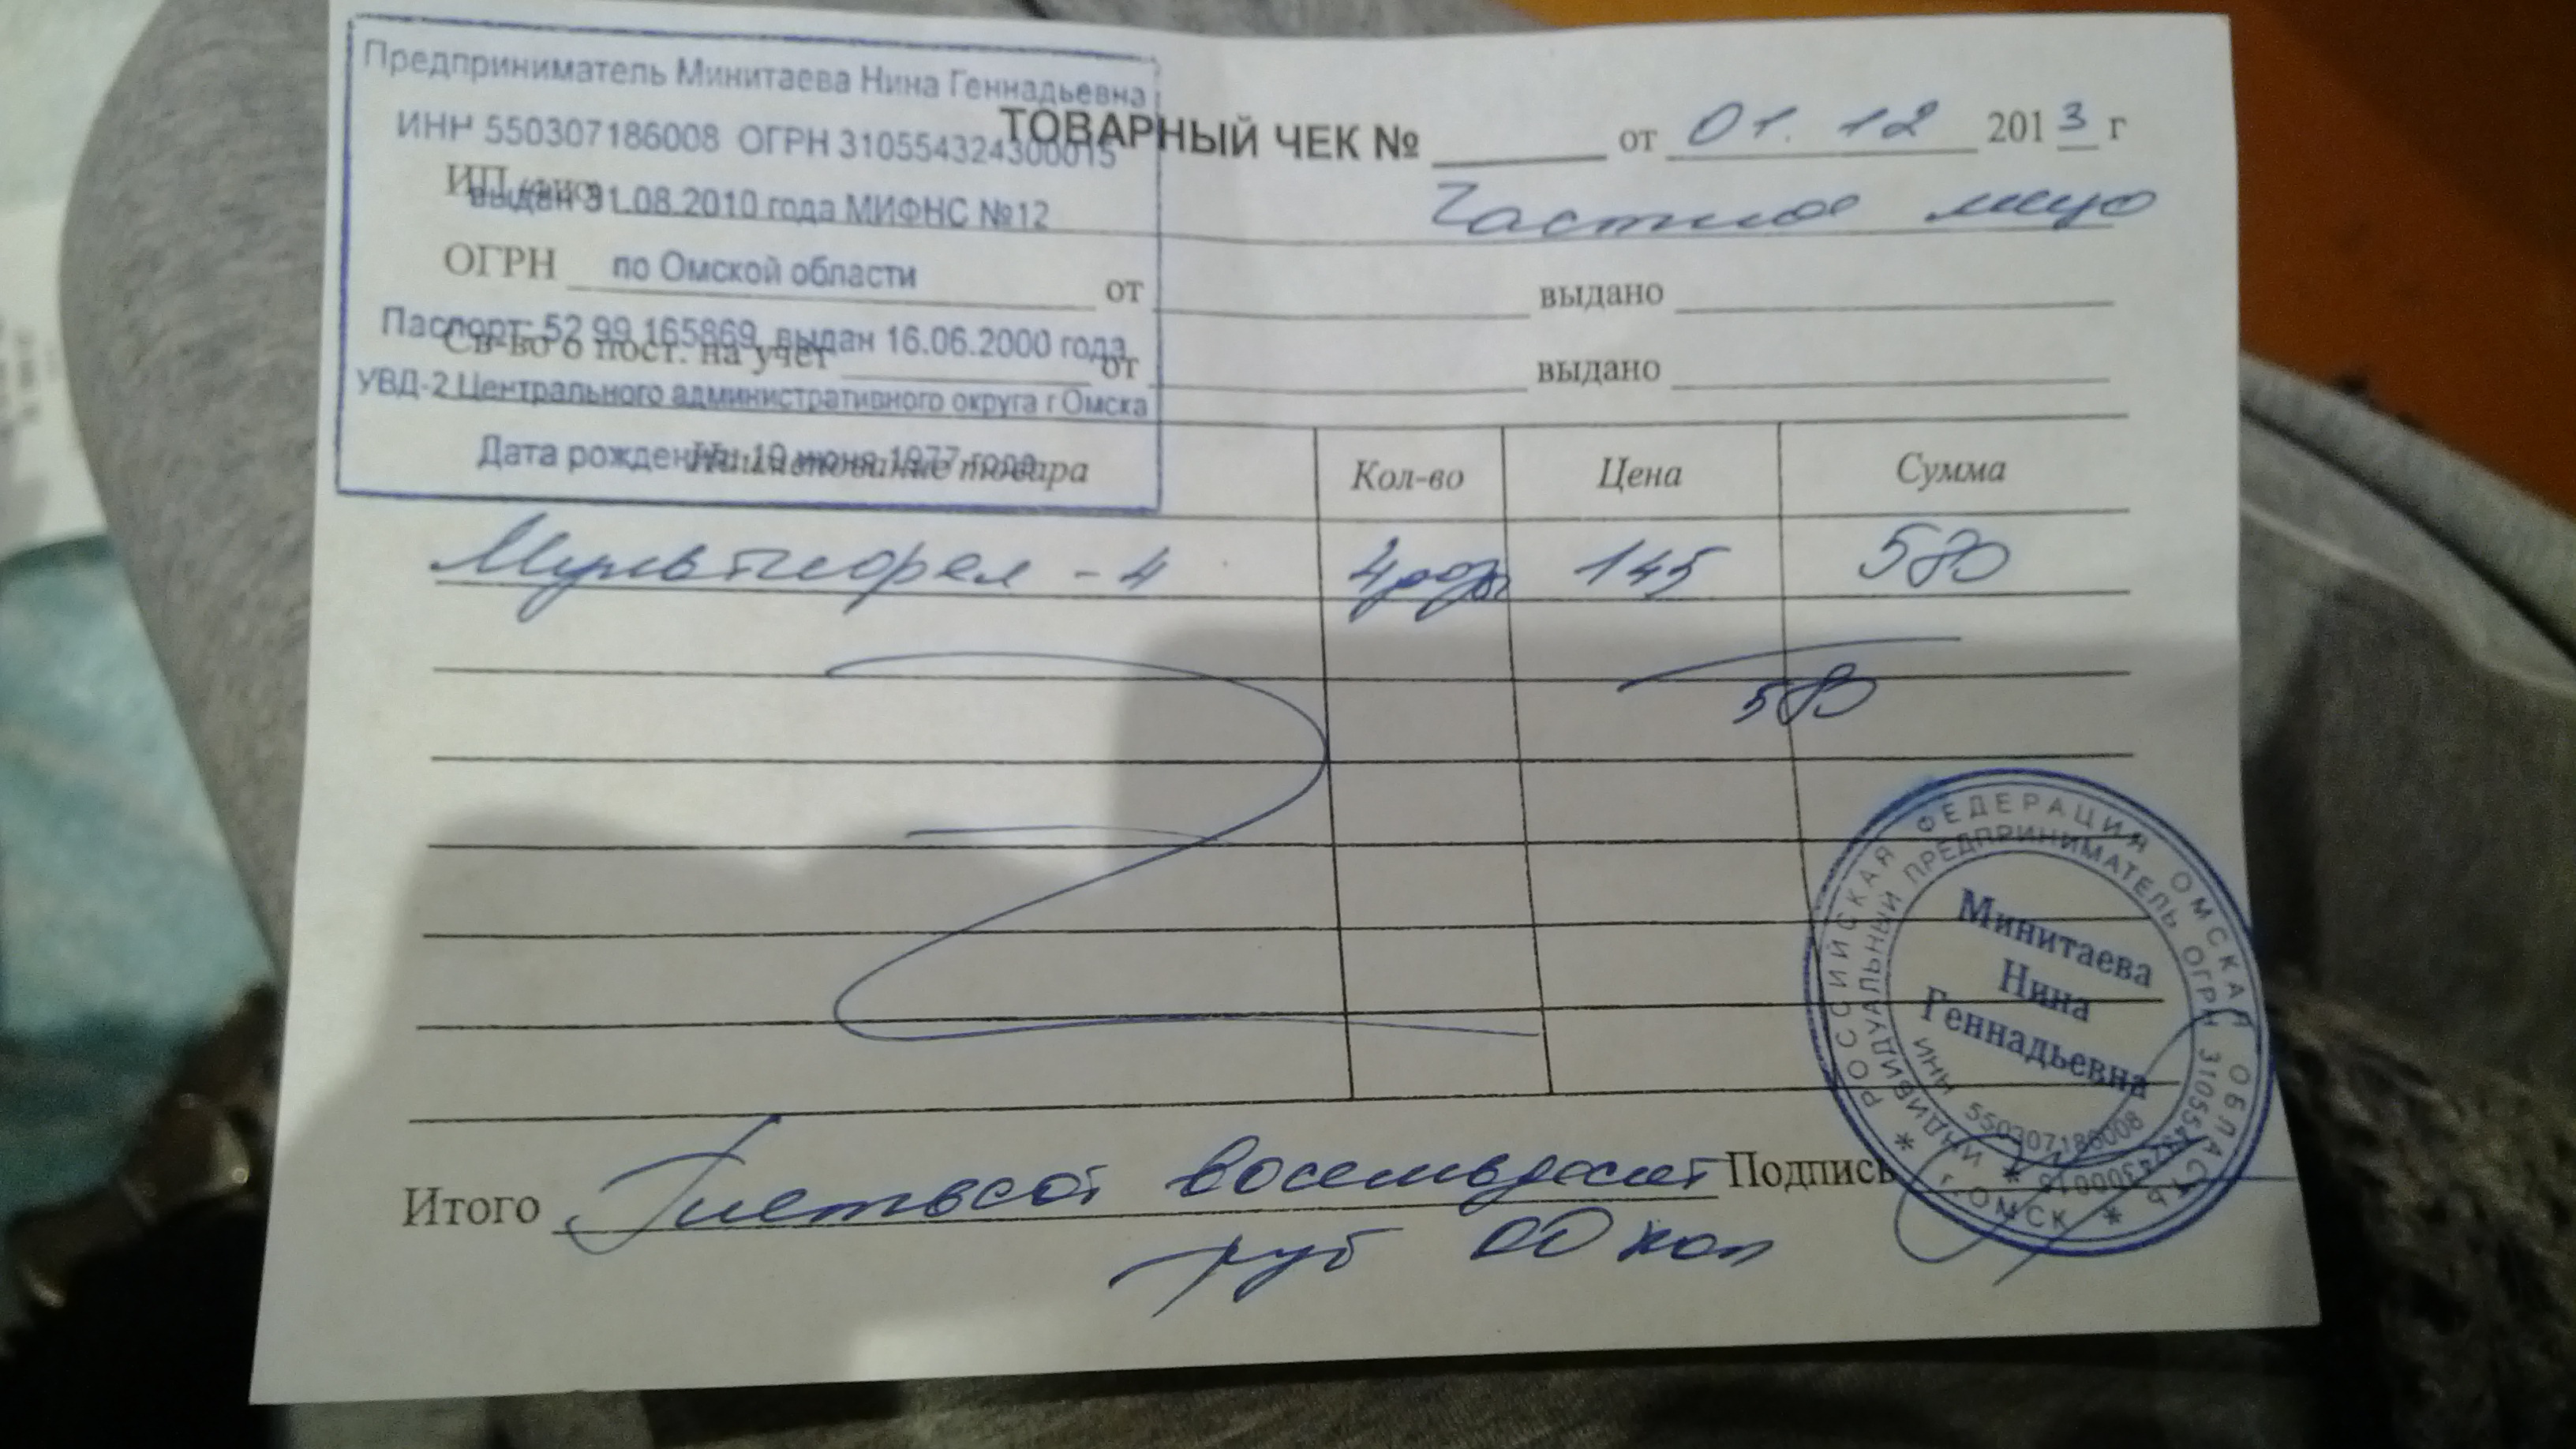 Предприниматель Минитаева Нина Геннадьевна
ИНН 550307186008 ОГРН 310554324300015
выдан 31.08.2010 года МИФНС №12
по Омской области
Паспорт: 52 99 165869 выдан 16.06.2000 года
УВД-2 Центрального административного округа г Омска
Дата рождения: 19 июня 1977 года
ТОВАРНЫЙ ЧЕК № от 01. 12 2013 г
ИП Частное лицо
ОГРН от выдано
Св-во о пост. на учет от выдано
Наименование товара Кол-во Цена Сумма
- 4 4 145 580
580
Итого Пятьсот восемьдесят Подпись
руб 00 коп
РОССИЙСКАЯ ФЕДЕРАЦИЯ ОМСКАЯ ОБЛАСТЬ * г. ОМСК *
ИНДИВИДУАЛЬНЫЙ ПРЕДПРИНИМАТЕЛЬ ОГРН 310554324300015 *
Минитаева
Нина
Геннадьевна
ИНН 550307186008